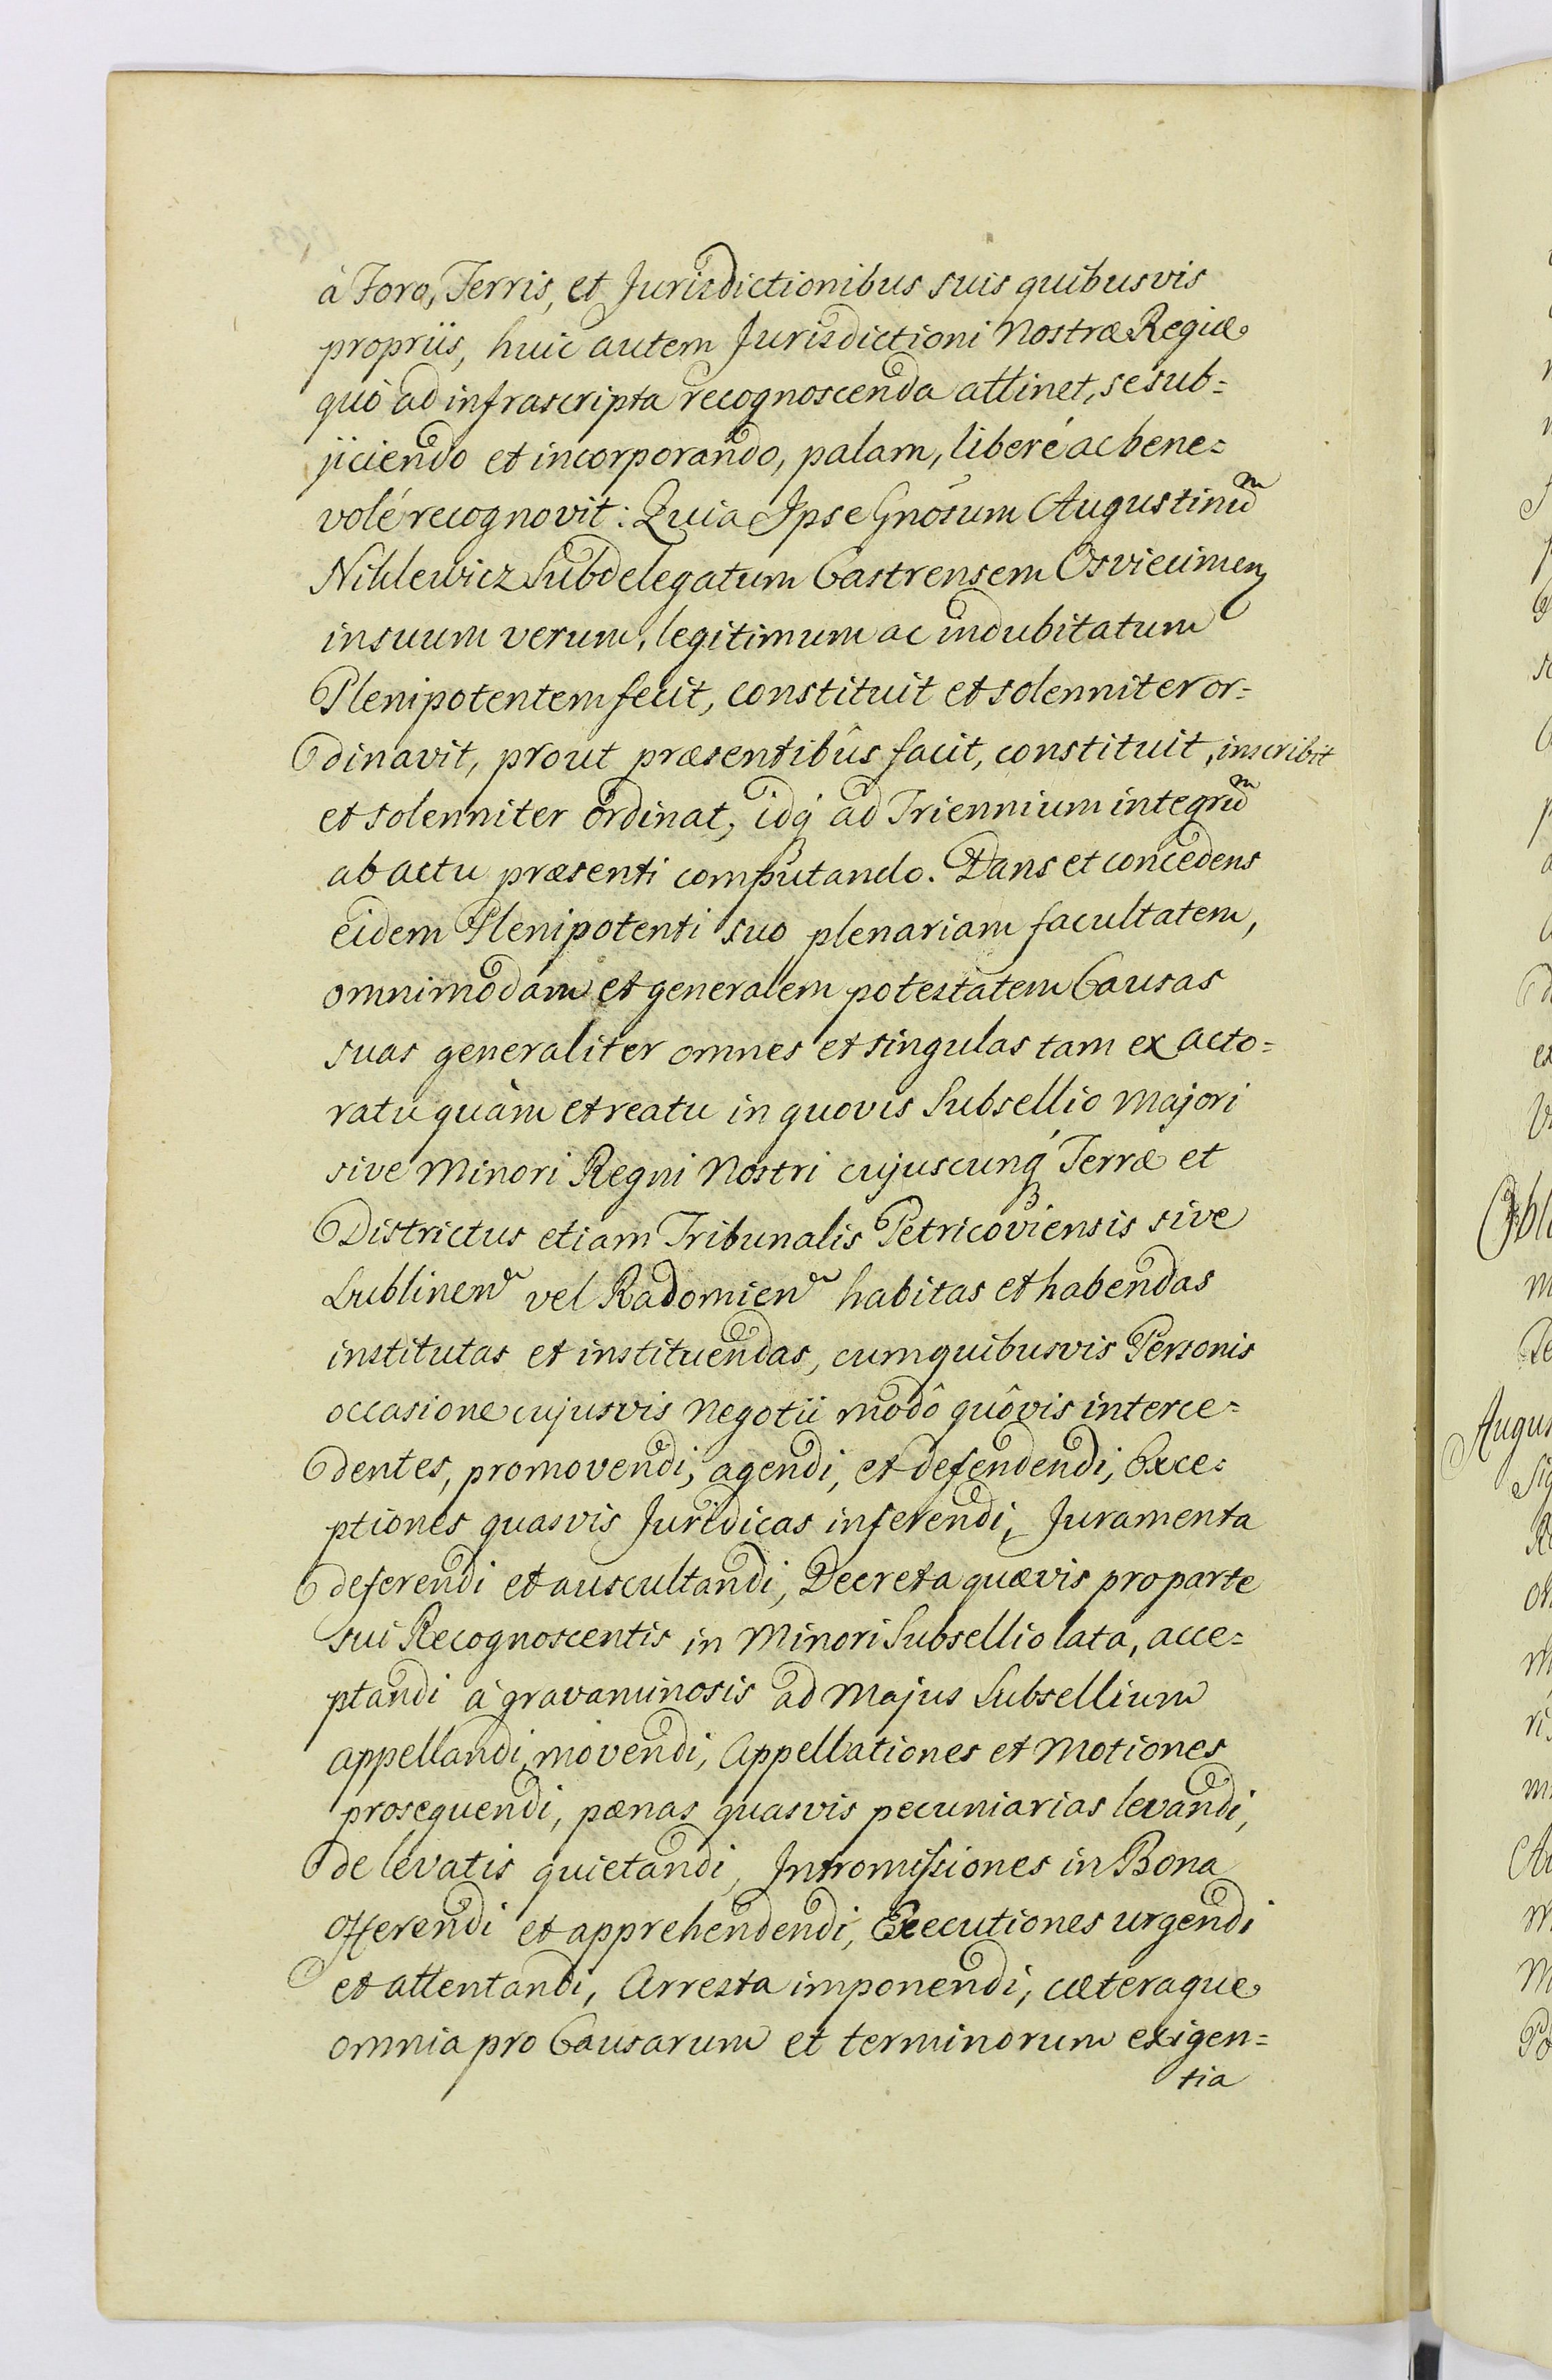 à Foro, Terris, et Jurisdictionibus suis quibusvis
propriis, huic autem Jurisdictioni Nostræ Regiæ
quò ad infrascripta recognoscenda attinet, se sub=
jiciendo et incorporando, palam, liberé ac bene=
volé recognovit: Quia Ipse Gnosum Augustinum
Niklewicz Subdelegatum Castrensem Osviecimen
in suum verum, legitimum ac indubitatum
Plenipotentem fecit, constituit et solenniter or=
dinavit, prout præsentibûs facit, constituit, inscribit
et solenniter ordinat, idq́ ad Triennium integrum
ab actu præsenti computando. Dans et concedens
eidem Plenipotenti suo plenariam facultatem,
omnimodam et generalem potestatem Causas
suas generaliter omnes et singulas tam ex acto=
ratu quàm et reatu in quovis Subsellio Majori
sive Minori Regni Nostri cujuscunq́ Terræ et
Districtus etiam Tribunalis Petricoviensis sive
Lublinen vel Radomien habitas et habendas
institutas et instituendas, cum quibusvis Personis
occasione cujusvis Negotii modô quôvis interce=
dentes, promovendi, agendi, et defendendi, Exce=
ptiones quasvis Juridicas inferendi, Juramenta
deferendi et auscultandi, Decreta quævis pro parte
sui Recognoscentis in Minori Subsellio lata, acce=
ptandi à gravaminosis ad Majus Subsellium
appellandi, movendi, Appellationes et Motiones
prosequendi, pænas quasvis pecuniarias levandi,
de levatis quietandi, Intromissiones in Bona
offerendi et apprehendendi, Executiones urgendi
et attentandi, Arresta imponendi, cæteraque
omnia pro Causarum et terminorum exigen=
tia